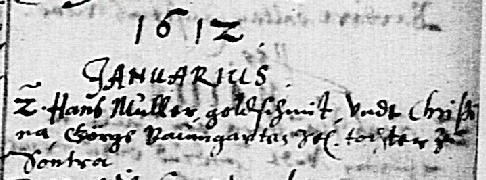 1612
JANUARIUS
2. Hans Müller, goldschmit, Vndt Christi
na, Georgs Baumgarten sel. tochter zu
Sontra